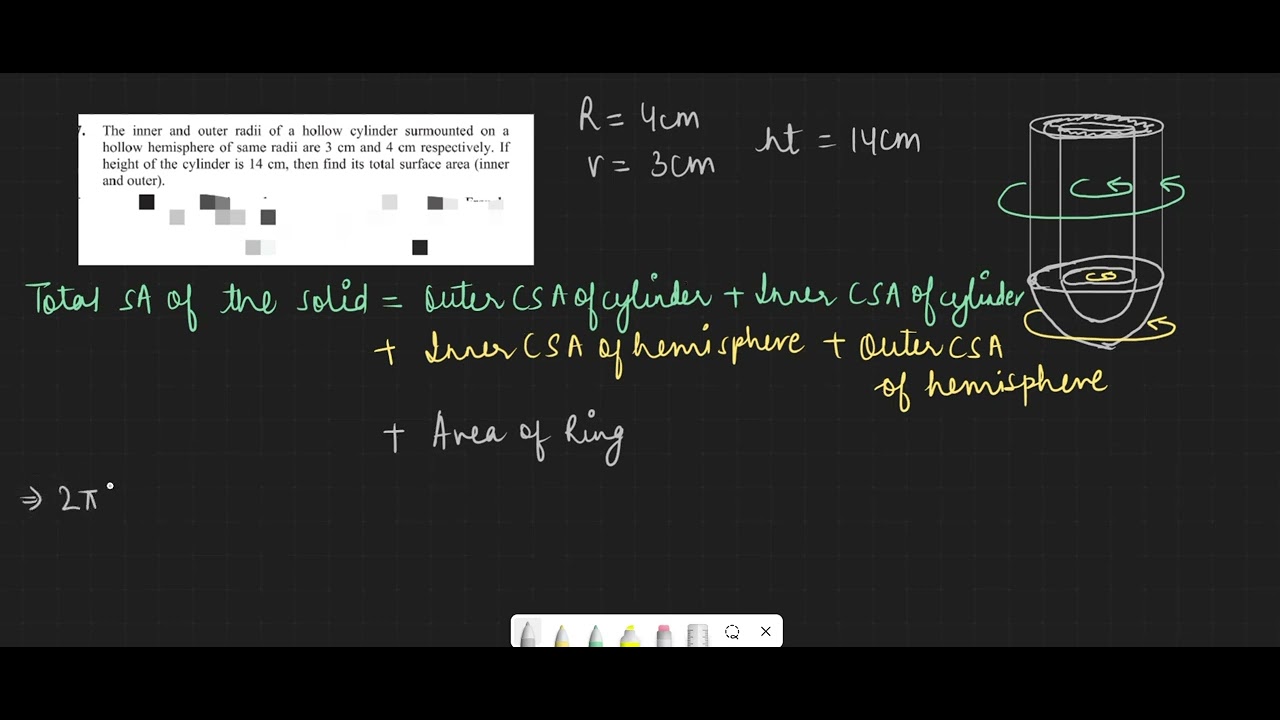 7. The inner and outer radii of a hollow cylinder surmounted on a
hollow hemisphere of same radii are 3 cm and 4 cm respectively. If
height of the cylinder is 14 cm, then find its total surface area (inner
and outer).
R = 4cm
r = 3cm
ht = 14cm
Total SA of the solid = Outer CSA of cylinder + Inner CSA of cylinder
+ Inner CSA of hemisphere + Outer CSA
of hemisphere
+ Area of Ring
⇒ 2π